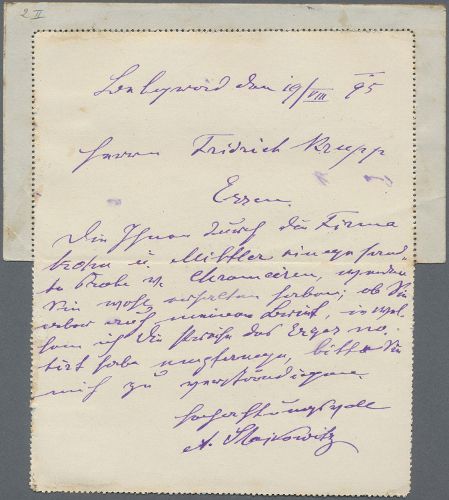 2 II
den 19/VIII 95
Herrn Fridrich Krupp
Essen
Die Ihnen durch die Firma
u. Mittler eingesand-
te Probe v. Chromeisen, werden
Sie wohl erhalten haben; ob Sie
aber auch meinen Brief, in wel-
chem ich die Preise des Erzes no-
tirt habe empfangen, bitte Sie
mich zu verständigen.
Hochachtungsvoll
A.